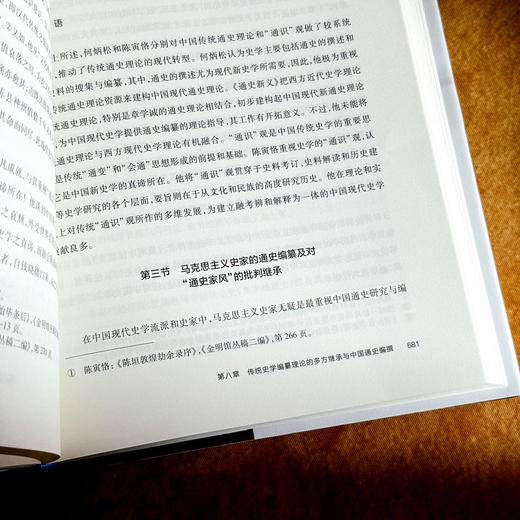 语
上所述，何炳松和陈寅恪分别对中国传统通史理论和“通识”观做了较系统
，推动了传统通史理论的现代转型。何炳松认为史学主要包括通史的撰述和
料的搜集与编纂，其中，通史的撰述尤为现代新史学所需要，因此，他极为重视
传统通史理论资源来建构中国现代通史理论。《通史新义》把西方近代史学理论
统通史理论，特别是章学诚的通史理论相结合，初步建构起中国现代新通史理
，为中国现代史学提供通史编纂的理论指导，其工作有开拓意义。不过，他未能将
通史理论与西方现代史学理论有机融合。“通识”观是中国传统史学的重要思
是传统“通变”和“会通”思想形成的前提和基础。陈寅恪重视史学的“通识”观，认
它是中国新史学的真谛所在。他将“通识”观贯穿于史料考订、史料解读和历史建
等史学研究的各个层面，要旨则在于从文化和民族的高度研究历史。他在理论和实
上对传统“通识”观所作的多维发展，为建立融考辨和解释为一体的中国现代史学
贡献良多。
第三节 马克思主义史家的通史编纂及对
“通史家风”的批判继承
在中国现代史学流派和史家中，马克思主义史家无疑是最重视中国通史研究与编
① 陈寅恪：《陈垣敦煌劫余录序》，《金明馆丛稿二编》，第 266 页。
第八章 传统史学编纂理论的多方继承与中国通史编撰 681